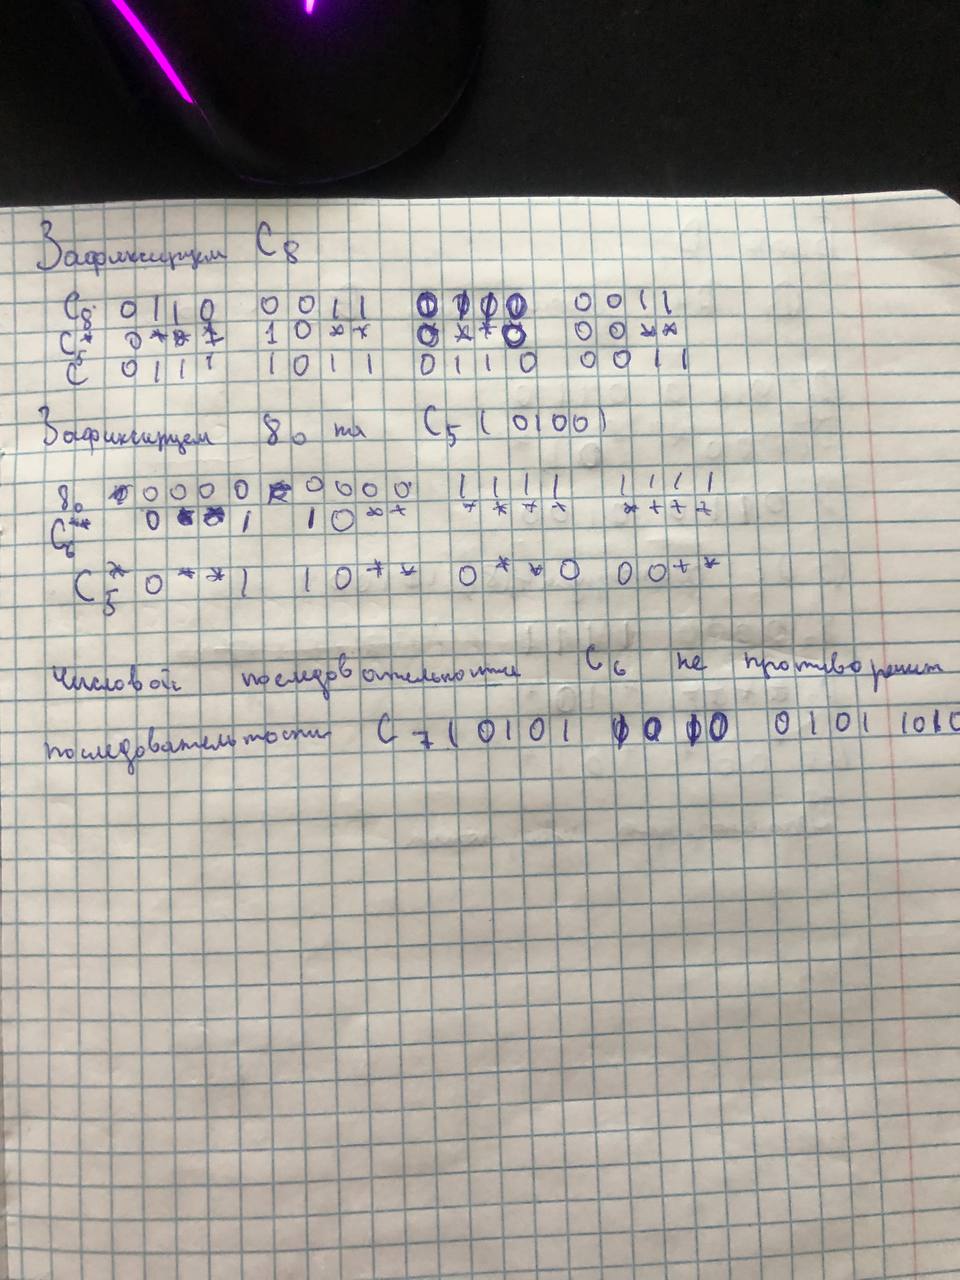 Зафиксируем C8
C8 0110 0011 0110 0011
C5* 0*** 10** 0**0 00**
C 0111 1011 0110 0011
Зафиксируем g0 та C5 (0100)
g0 0000 0000 1111 1111
C6** 0**1 10** **** ****
C5* 0**1 10** 0**0 00**
Числовой последовательности C6 не противоречит
последовательности C7 (0101 1010 0101 1010